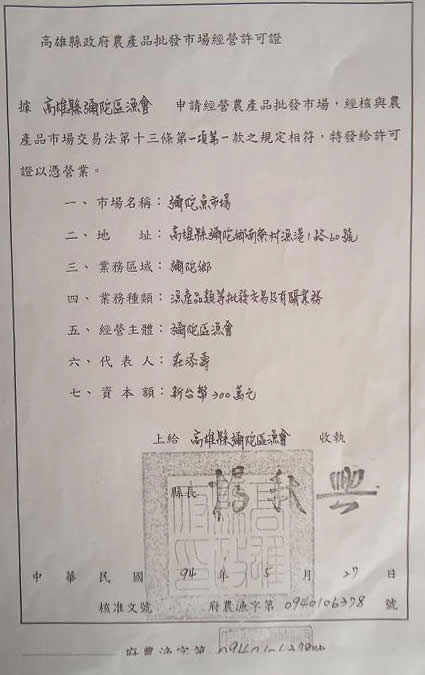 高雄縣政府農產品批發市場經營許可證
據 高雄縣彌陀區漁會 申請經營農產品批發市場，經核與農
產品市場交易法第十三條第一項第一款之規定相符，特發給許可
證以憑營業。
一、市場名稱：彌陀魚市場
二、地 址：高雄縣彌陀鄉南寮村漁港1路60號
三、業務區域：彌陀鄉
四、業務種類：漁產品類等批發交易及有關業務
五、經營主體：彌陀區漁會
六、代表人：莊添壽
七、資本額：新台幣300萬元
上給 高雄縣彌陀區漁會 收執
縣長 楊秋興
高雄縣政府印
中華民國 94 年 5 月 27 日
核准文號 府農漁字第 0940106378 號
府農漁字第